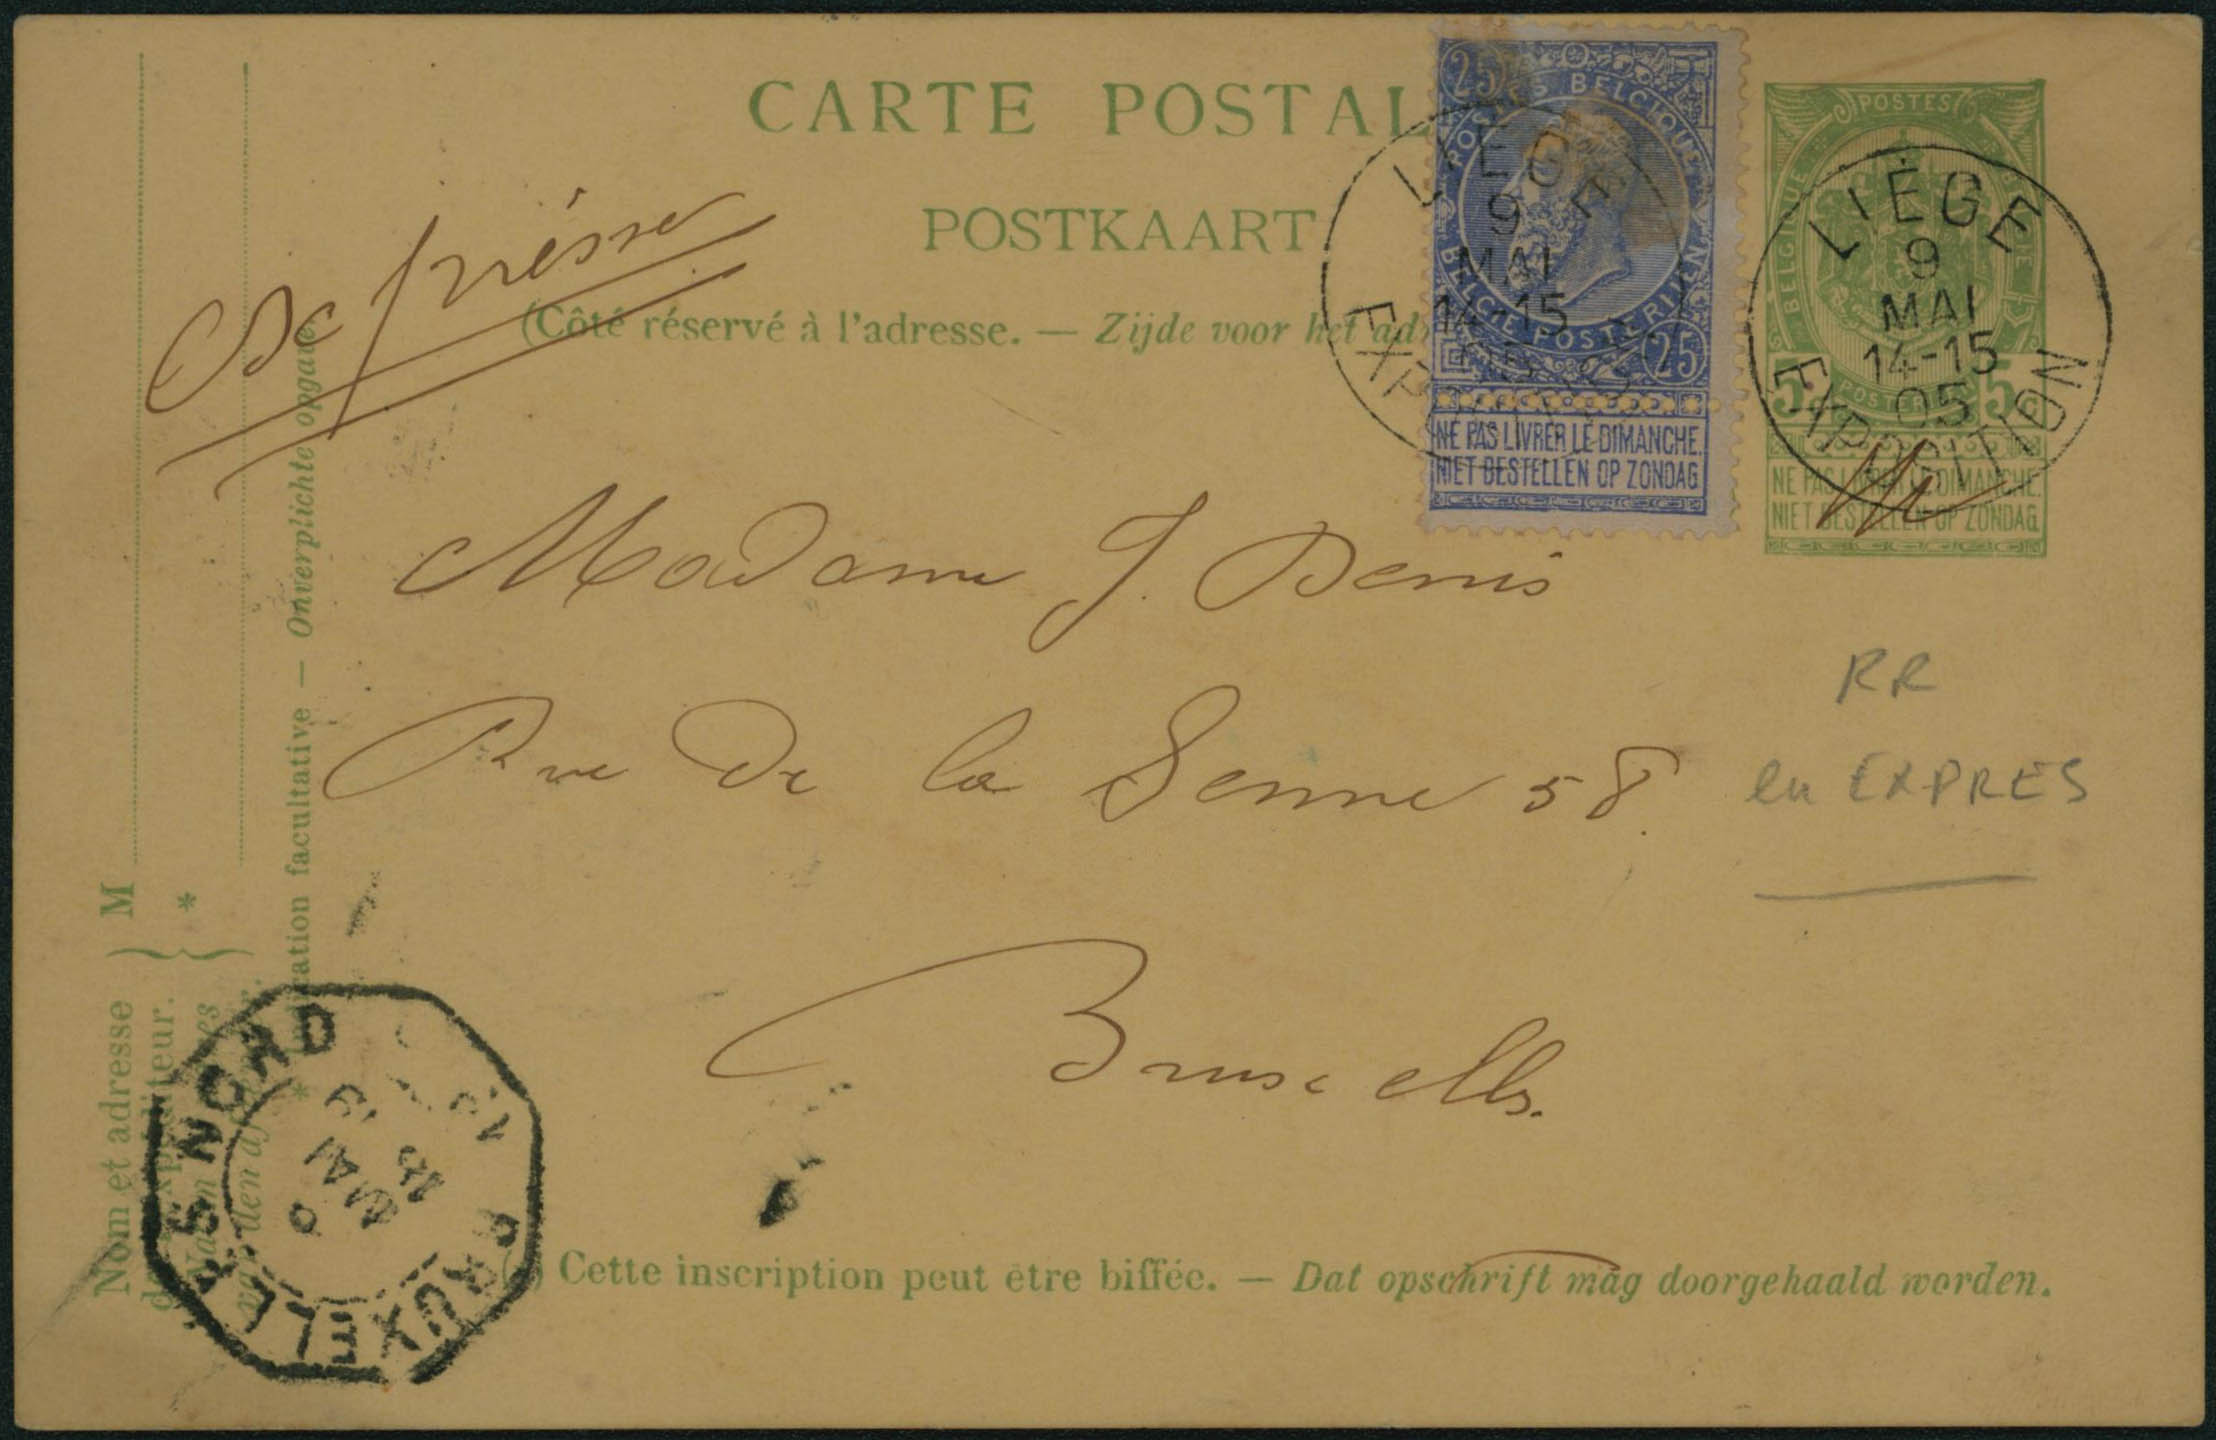 CARTE POSTAL
POSTKAART
(Côté réservé à l'adresse. — Zijde voor het ad
25
POSTES BELGIQUE
BELGIE POSTERIJEN
25
NE PAS LIVRER LE DIMANCHE.
NIET BESTELLEN OP ZONDAG
LIÈGE
9
MAI
14-15
05
EXPOSITION
POSTES
BELGIQUE
5c POSTERIJEN 5c
NE PAS LIVRER LE DIMANCHE.
NIET BESTELLEN OP ZONDAG
LIÈGE
9
MAI
14-15
05
EXPOSITION
Madame J. Denis
Rue de la Senne 58.
Bruxelles.
RR
en EXPRES
Nom et adresse
de l'expéditeur.
M
* Indication facultative — Onverplichte opgave.
BRUXELLES NORD
9
MAI
19
(*) Cette inscription peut être biffée. — Dat opschrift mag doorgehaald worden.